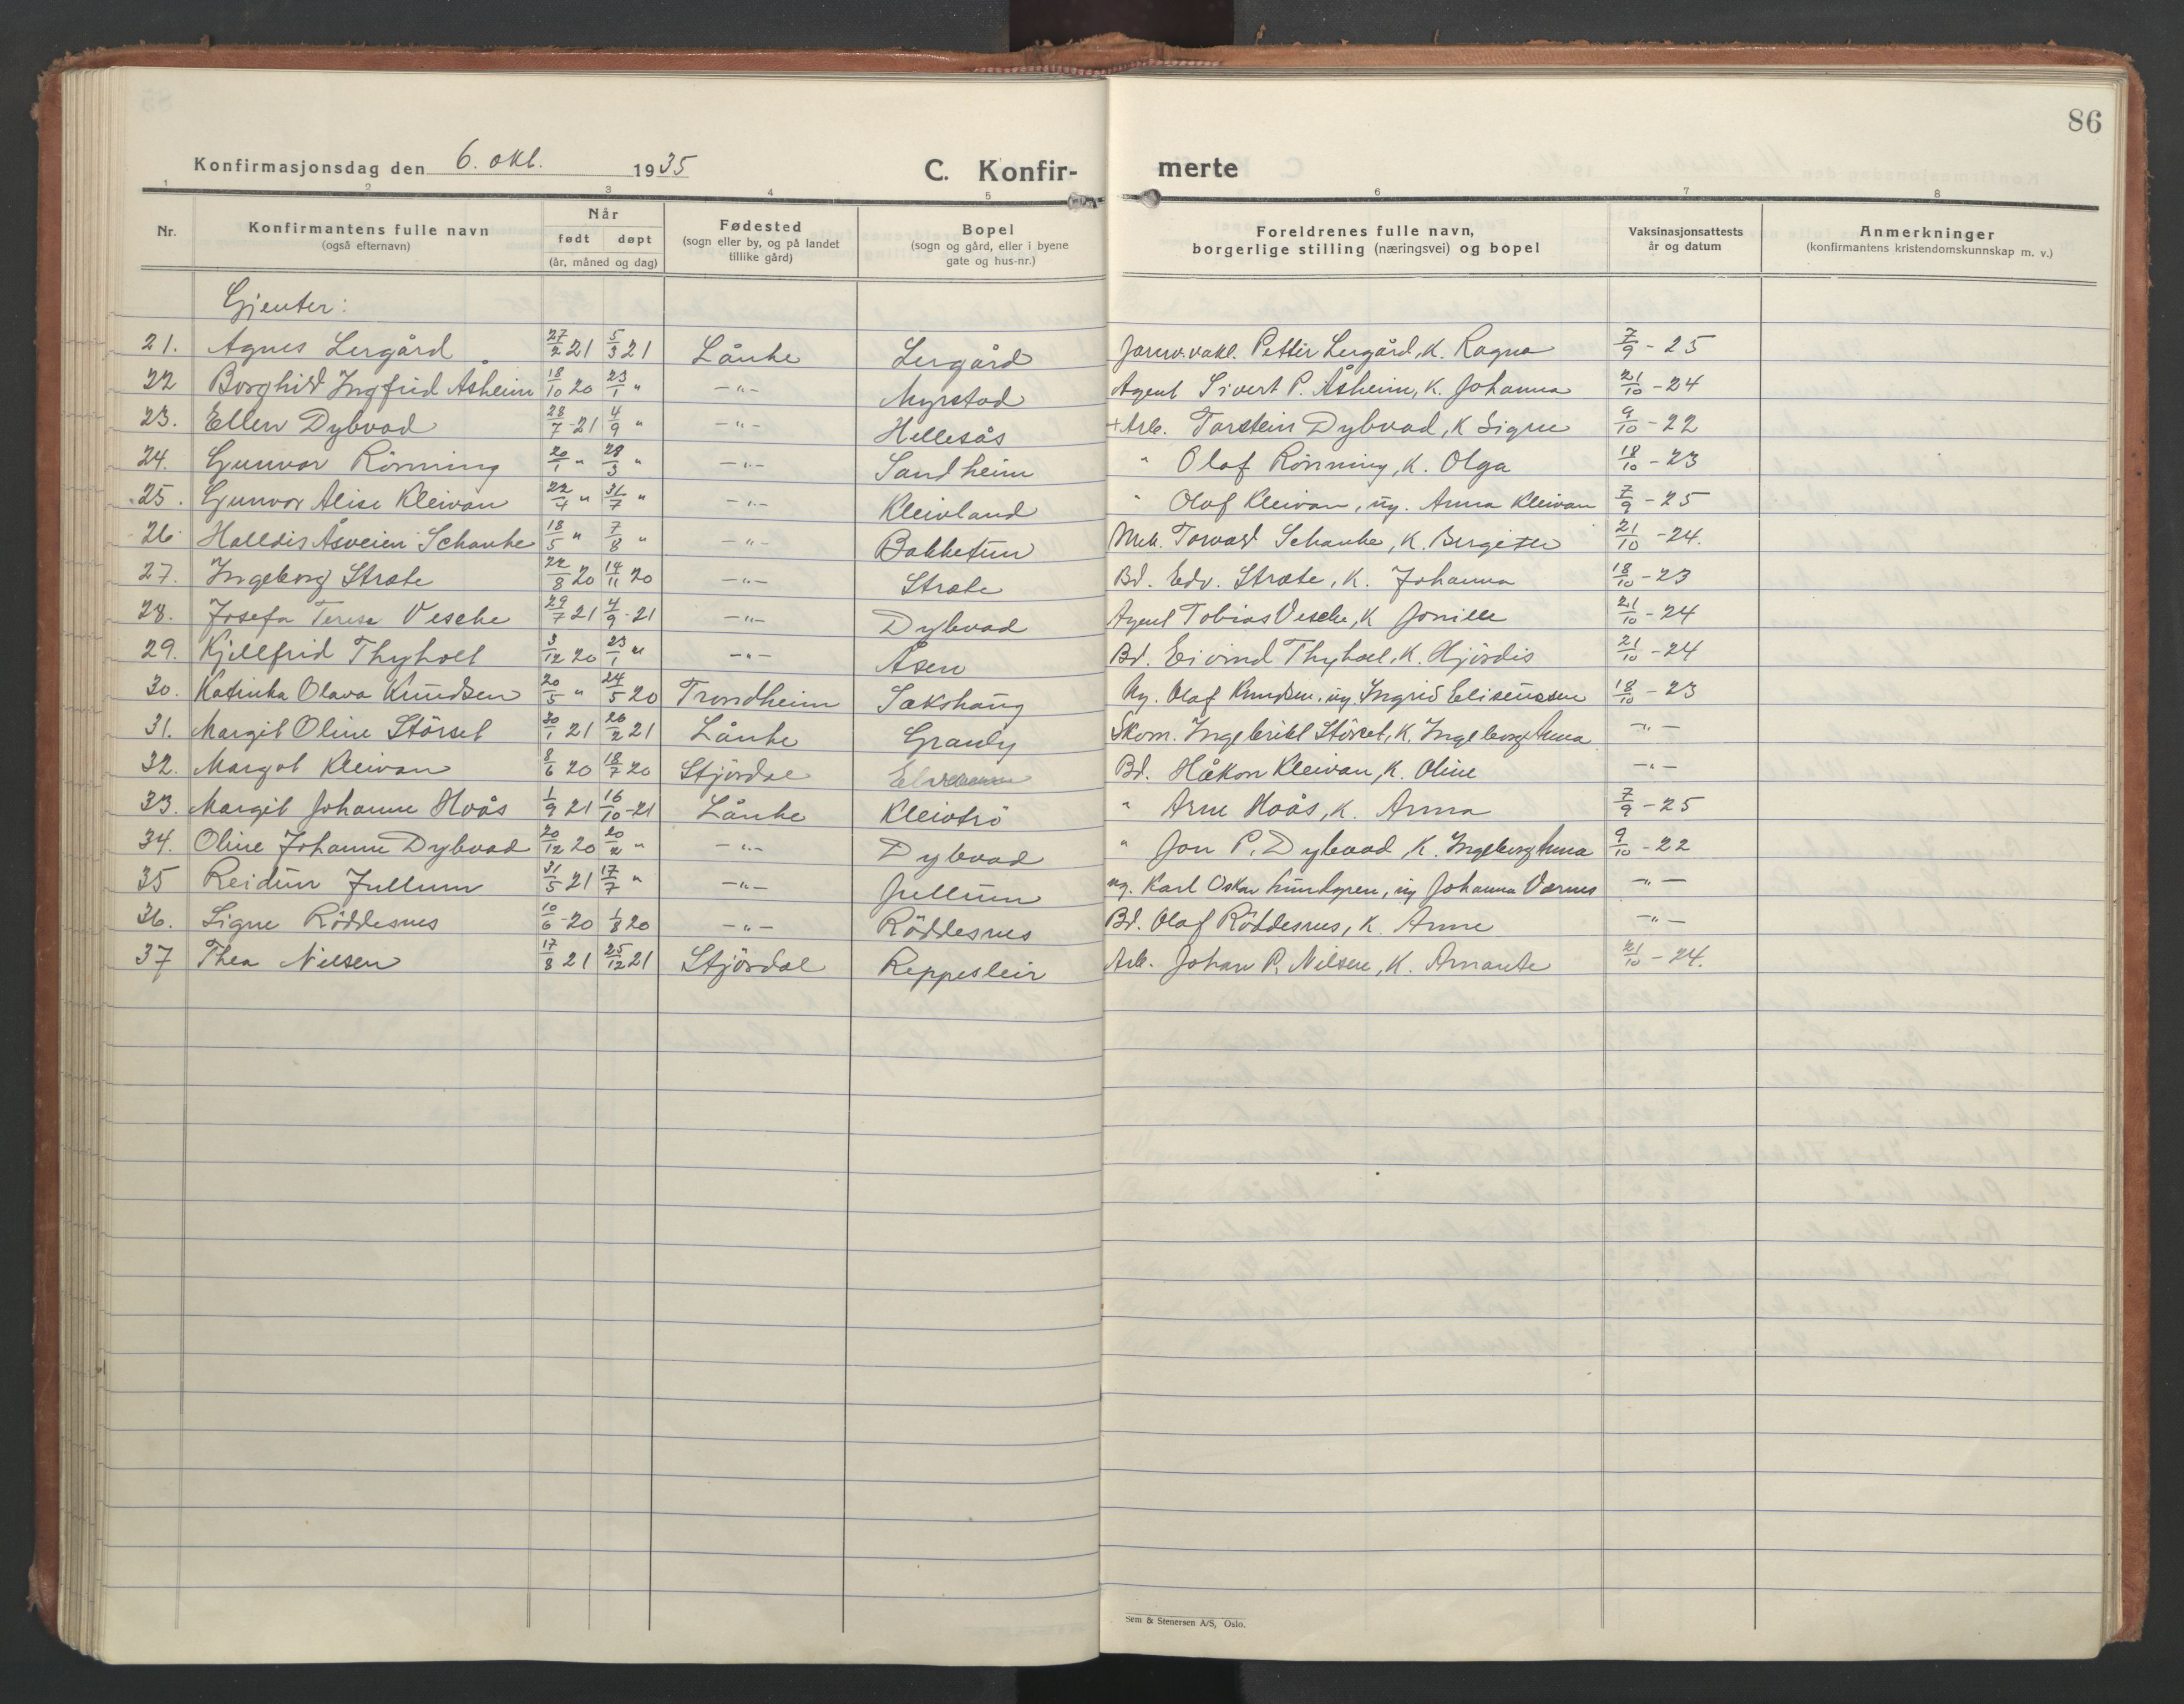 86
Konfirmasjonsdag den 6. okt. 1935 C. Konfir- merte
1 2 3 4 5 6 7 8
Nr. Konfirmantens fulle navn (også efternavn) Når født døpt (år, måned og dag) Fødested (sogn eller by, og på landet tillike gård) Bopel (sogn og gård, eller i byene gate og hus-nr.) Foreldrenes fulle navn, borgerlige stilling (næringsvei) og bopel Vaksinasjonsattests år og datum Anmerkninger (konfirmantens kristendomskunnskap m. v.)
Gjenter:
21. Agnes Lergård 27/2 21 5/3 21 Lånke Lergård Jarnv.vakt. Petter Lergård, K. Ragna 7/9 - 25
22 Borghild Ingfrid Åsheim 18/10 20 23/1 " -"- Myrstad Agent Sivert P. Åsheim, K. Johanna 21/10 - 24
23. Ellen Dybvad 28/7 - 21 4/9 " -"- Hellesås + Arb. Torstein Dybvad, K Signe 9/10 - 22
24. Gunvor Rönning 20/1 " 28/3 " -"- Sandheim " Olaf Rönning, K. Olga 18/10 - 23
25. Gunvor Alise Kleivan 22/4 " 31/7 " -"- Kleivland " Olaf Kleivan, ug. Anna Kleivan 7/9 - 25
26. Halldis Åsveien Schanke 18/5 " 7/8 " -"- Bakketun Mek. Torvald Schanke, K. Bergitte 21/10 - 24.
27. Ingeborg Stræte 22/8 20 14/11 20 -"- Stræte Bd. Edv. Stræte, K. Johanna 18/10 - 23
28. Josefa Terese Vesche 29/7 21 4/9 - 21 -"- Dybvad Agent Tobias Vesche, K Jonille 21/10 - 24
29. Kjellfrid Thyholt 3/12 20 23/1 " -"- Åsen Bd. Eivind Thyholt, K. Hjördis 21/10 - 24
30. Katinka Olava Knudsen 20/5 " 24/5 20 Trondheim Sakshaug Ug. Olaf Knudsen, ug. Ingrid Eliseussen 18/10 - 23
31. Margit Oline Störset 30/1 21 20/2 21 Lånke Granly Skom. Ingebrikt Störset, K. Ingeborg Anna -"-
32. Margot Kleivan 8/6 20 18/7 20 Stjördal Bd. Håkon Kleivan, K. Oline -"-
33. Margit Johanne Hoås 1/9 21 16/10 - 21 Lånke Kleivtrö " Arne Hoås, K. Anna 7/9 - 25
34. Oline Johanne Dybvad 20/12 20 20/2 " -"- Dybvad " Jon P. Dybvad K. Ingeborg Anna 9/10 - 22
35 Reidun Jullum 31/5 21 17/7 " -"- Jullum ug. Karl Oskar Lundgren, ug Johanna Værnes -"-
36. Signe Röddesnes 10/6 - 20 1/8 20 -"- Röddesnes Bd. Olaf Röddesnes, K. Anne -"-
37 Thea Nilsen 17/8 21 25/12 21 Stjördal Reppesleir Arb. Johan P. Nilsen, K. Amante 21/10 - 24.
Sem & Stenersen A/S, Oslo.